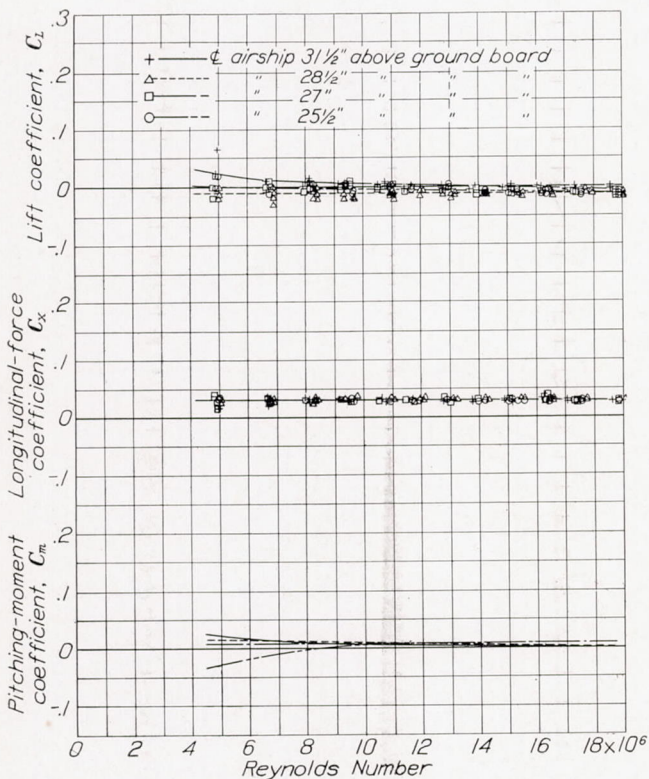 .3
.2
.1
0
-.1
Lift coefficient, C_L
+ —— ℄ airship 31½" above ground board
△ ----- " 28½" " " "
□ —— - " 27" " " "
○ —— - — " 25½" " " "
.2
.1
0
-.1
Longitudinal-force
coefficient, Cₓ
.2
.1
0
-.1
Pitching-moment
coefficient, Cₘ
0 2 4 6 8 10 12 14 16 18×10⁶
Reynolds Number